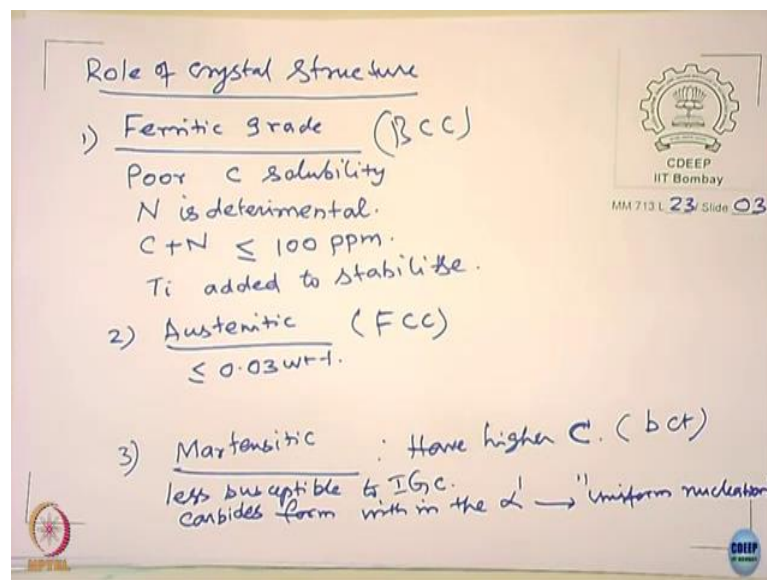 Role of crystal structure
1) Ferritic grade (BCC)
Poor C solubility
N is deterimental.
C+N ≤ 100 ppm.
Ti added to stabilise.
2) Austenitic (FCC)
≤ 0.03 wt%.
3) Martensitic : Have higher C. (bct)
less susceptible to IGC.
carbides form with in the α' → "uniform nucleation
CDEEP
IIT Bombay
MM 713 L 23 / Slide 03
NPTEL
CDEEP
IIT BOMBAY